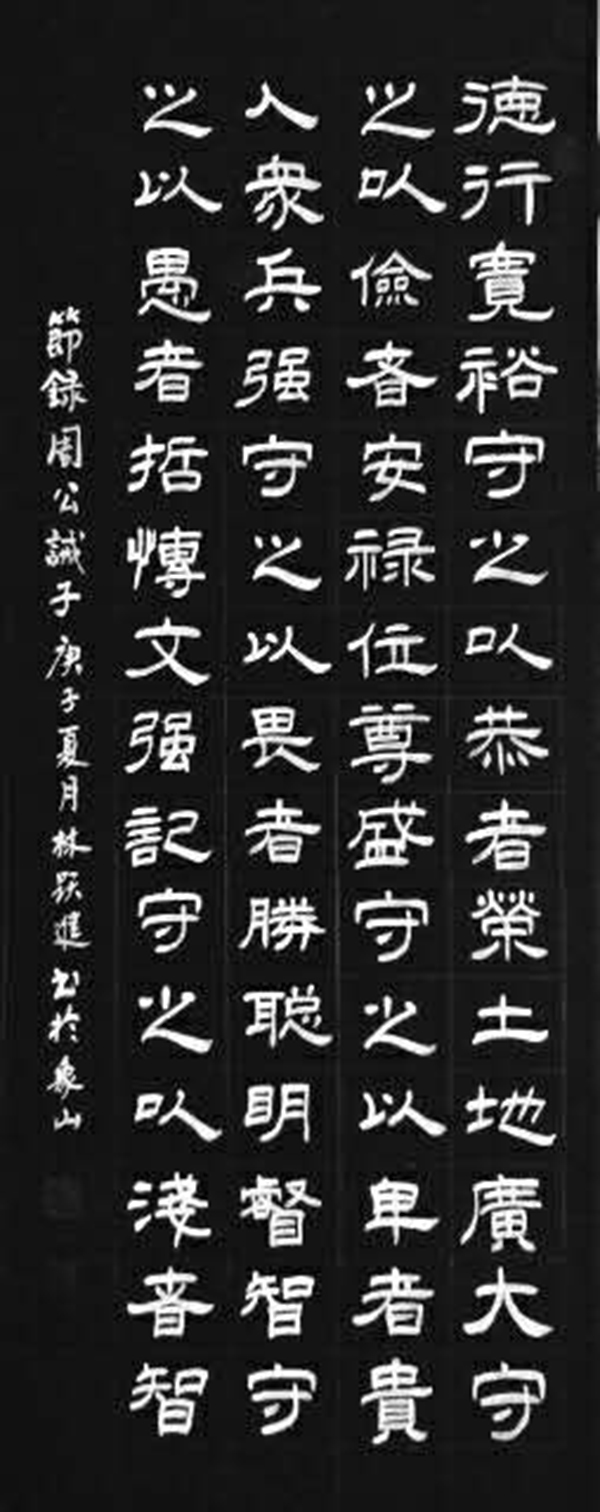 德行寬裕守之以恭者榮土地廣大守
之以儉者安祿位尊盛守之以卑者貴
人衆兵强守之以畏者勝聪明睿智守
之以愚者哲博文强記守之以淺者智
節録周公誡子庚子夏月林躍進书於象山